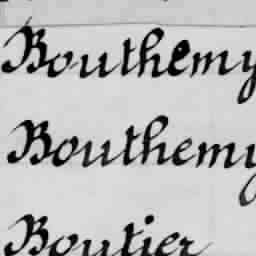 Bouthemy
Bouthemy
Boutier